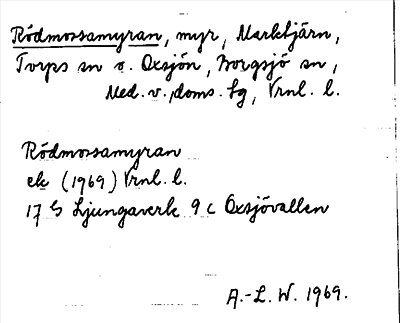 Rödmossamyran, myr, Marktjärn,
Torps sn o. Oxsjön, Borgsjö sn,
Med. v. doms. sg, Vrnl. l.
Rödmossamyran
ek (1969) Vrnl. l.
17 G Ljungaverk 9 c Oxsjövallen
A.-L. W. 1969.